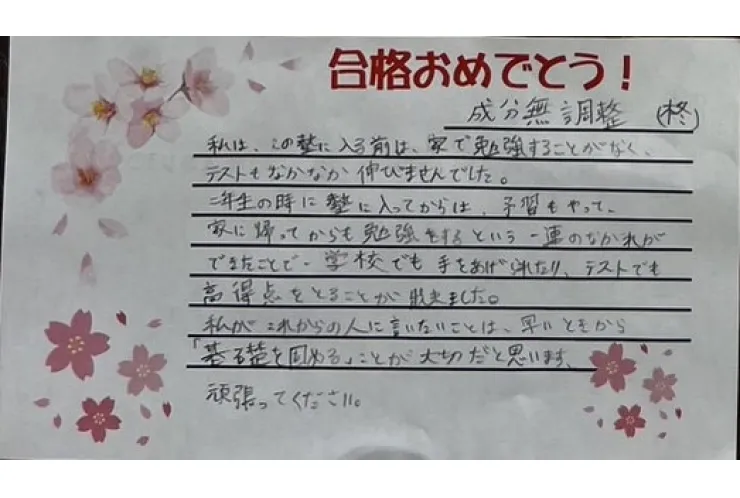 合格おめでとう!
成分無調整 (柊)
私は、この塾に入る前は、家で勉強することがなく、
テストもなかなか伸びませんでした。
二年生の時に塾に入ってからは、予習もやって、
家に帰ってからも勉強をするという一連のながれが
できたことで、学校でも手をあげられたり、テストでも
高得点をとることが出来ました。
私がこれからの人に言いたいことは、早いときから
「基礎を固める」ことが大切だと思います。
頑張ってください。